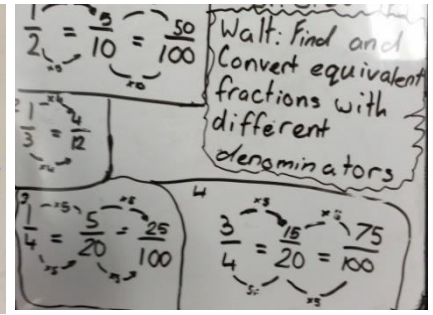 1/2 = 5/10 = 50/100
×5 ×10
Walt: Find and
Convert equivalent
fractions with
different
denominators
2
×4
1/3 = 4/12
×4
3
×5 ×5
1/4 = 5/20 = 25/100
×5 ×5
4
×5 ×5
3/4 = 15/20 = 75/100
×5